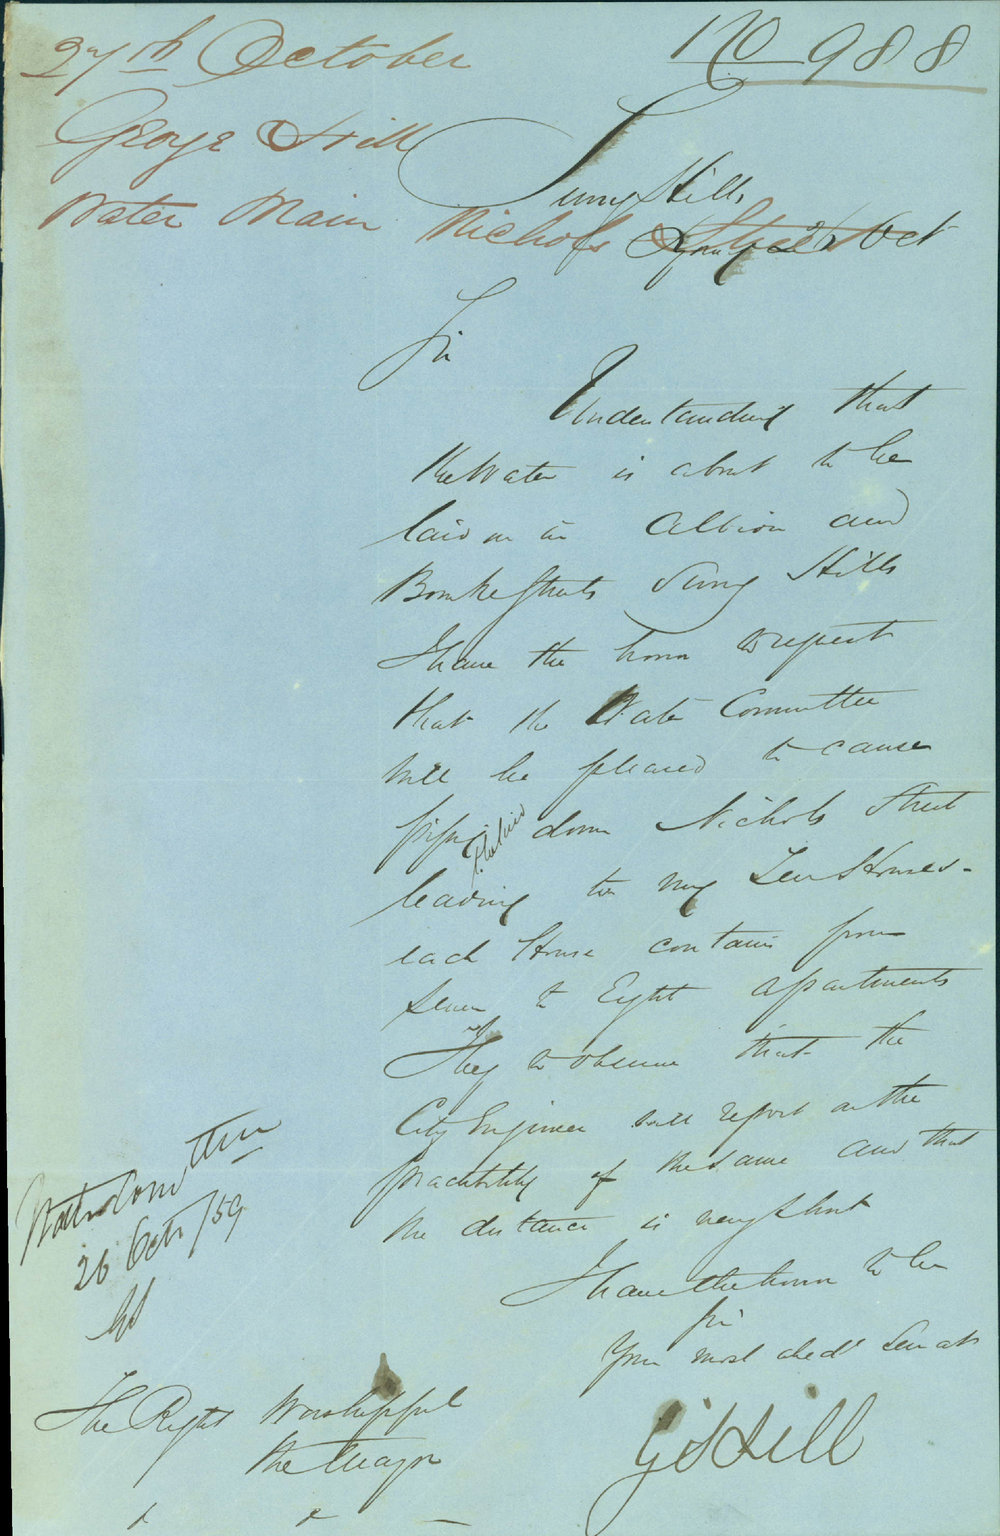 27th October
No 988
George Hill
Water Main Nichols Street
Surry Hills
Sydney 26 Oct
Sir
Understanding that
the Water is about to be
laid on in Albion and
Bourke Streets Surry Hills
I have the honor to request
that the Water Committee
will be pleased to cause
pipes to be laid down Nichols Street
leading to my Ten Houses -
each House contains from
Seven to Eight apartments
I beg to observe that the
City Engineer will report on the
practibility of the same and that
the distance is very short
I have the honor to be
Sir
Your most obedt Servant
G Hill
Water Committee
26 Oct /59
The Right Worshipful
the Mayor